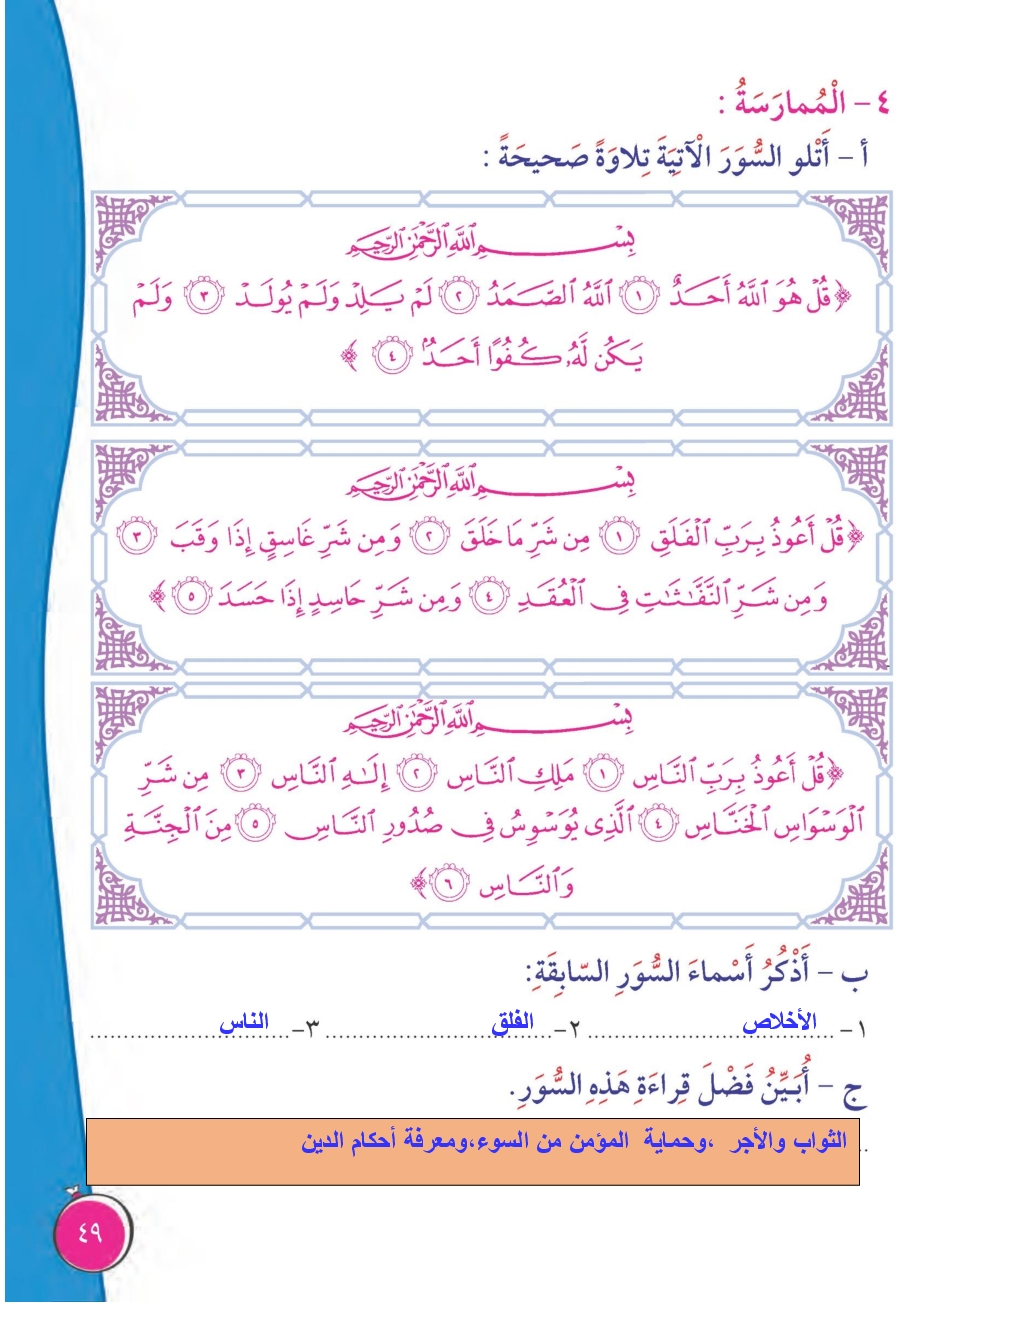 ٤ - الْمُمارَسَةُ :
أ - أَتْلو السُّوَرَ الْآتِيَةَ تِلاوَةً صَحيحَةً :
بِسْمِ اللَّهِ الرَّحْمَٰنِ الرَّحِيمِ
﴿ قُلْ هُوَ ٱللَّهُ أَحَدٌ ١ ٱللَّهُ ٱلصَّمَدُ ٢ لَمْ يَلِدْ وَلَمْ يُولَدْ ٣ وَلَمْ
يَكُن لَّهُۥ كُفُوًا أَحَدٌۢ ٤ ﴾
بِسْمِ اللَّهِ الرَّحْمَٰنِ الرَّحِيمِ
﴿ قُلْ أَعُوذُ بِرَبِّ ٱلْفَلَقِ ١ مِن شَرِّ مَا خَلَقَ ٢ وَمِن شَرِّ غَاسِقٍ إِذَا وَقَبَ ٣
وَمِن شَرِّ ٱلنَّفَّٰثَٰتِ فِى ٱلْعُقَدِ ٤ وَمِن شَرِّ حَاسِدٍ إِذَا حَسَدَ ٥ ﴾
بِسْمِ اللَّهِ الرَّحْمَٰنِ الرَّحِيمِ
﴿ قُلْ أَعُوذُ بِرَبِّ ٱلنَّاسِ ١ مَلِكِ ٱلنَّاسِ ٢ إِلَٰهِ ٱلنَّاسِ ٣ مِن شَرِّ
ٱلْوَسْوَاسِ ٱلْخَنَّاسِ ٤ ٱلَّذِى يُوَسْوِسُ فِى صُدُورِ ٱلنَّاسِ ٥ مِنَ ٱلْجِنَّةِ
وَٱلنَّاسِ ٦ ﴾
ب - أَذْكُرُ أَسْماءَ السُّوَرِ السّابِقَةِ:
١ - الأخلاص ٢- الفلق ٣- الناس
ج - أُبَيِّنُ فَضْلَ قِراءَةِ هَذِهِ السُّوَرِ.
الثواب والأجر ،وحماية المؤمن من السوء،ومعرفة أحكام الدين
٤٩